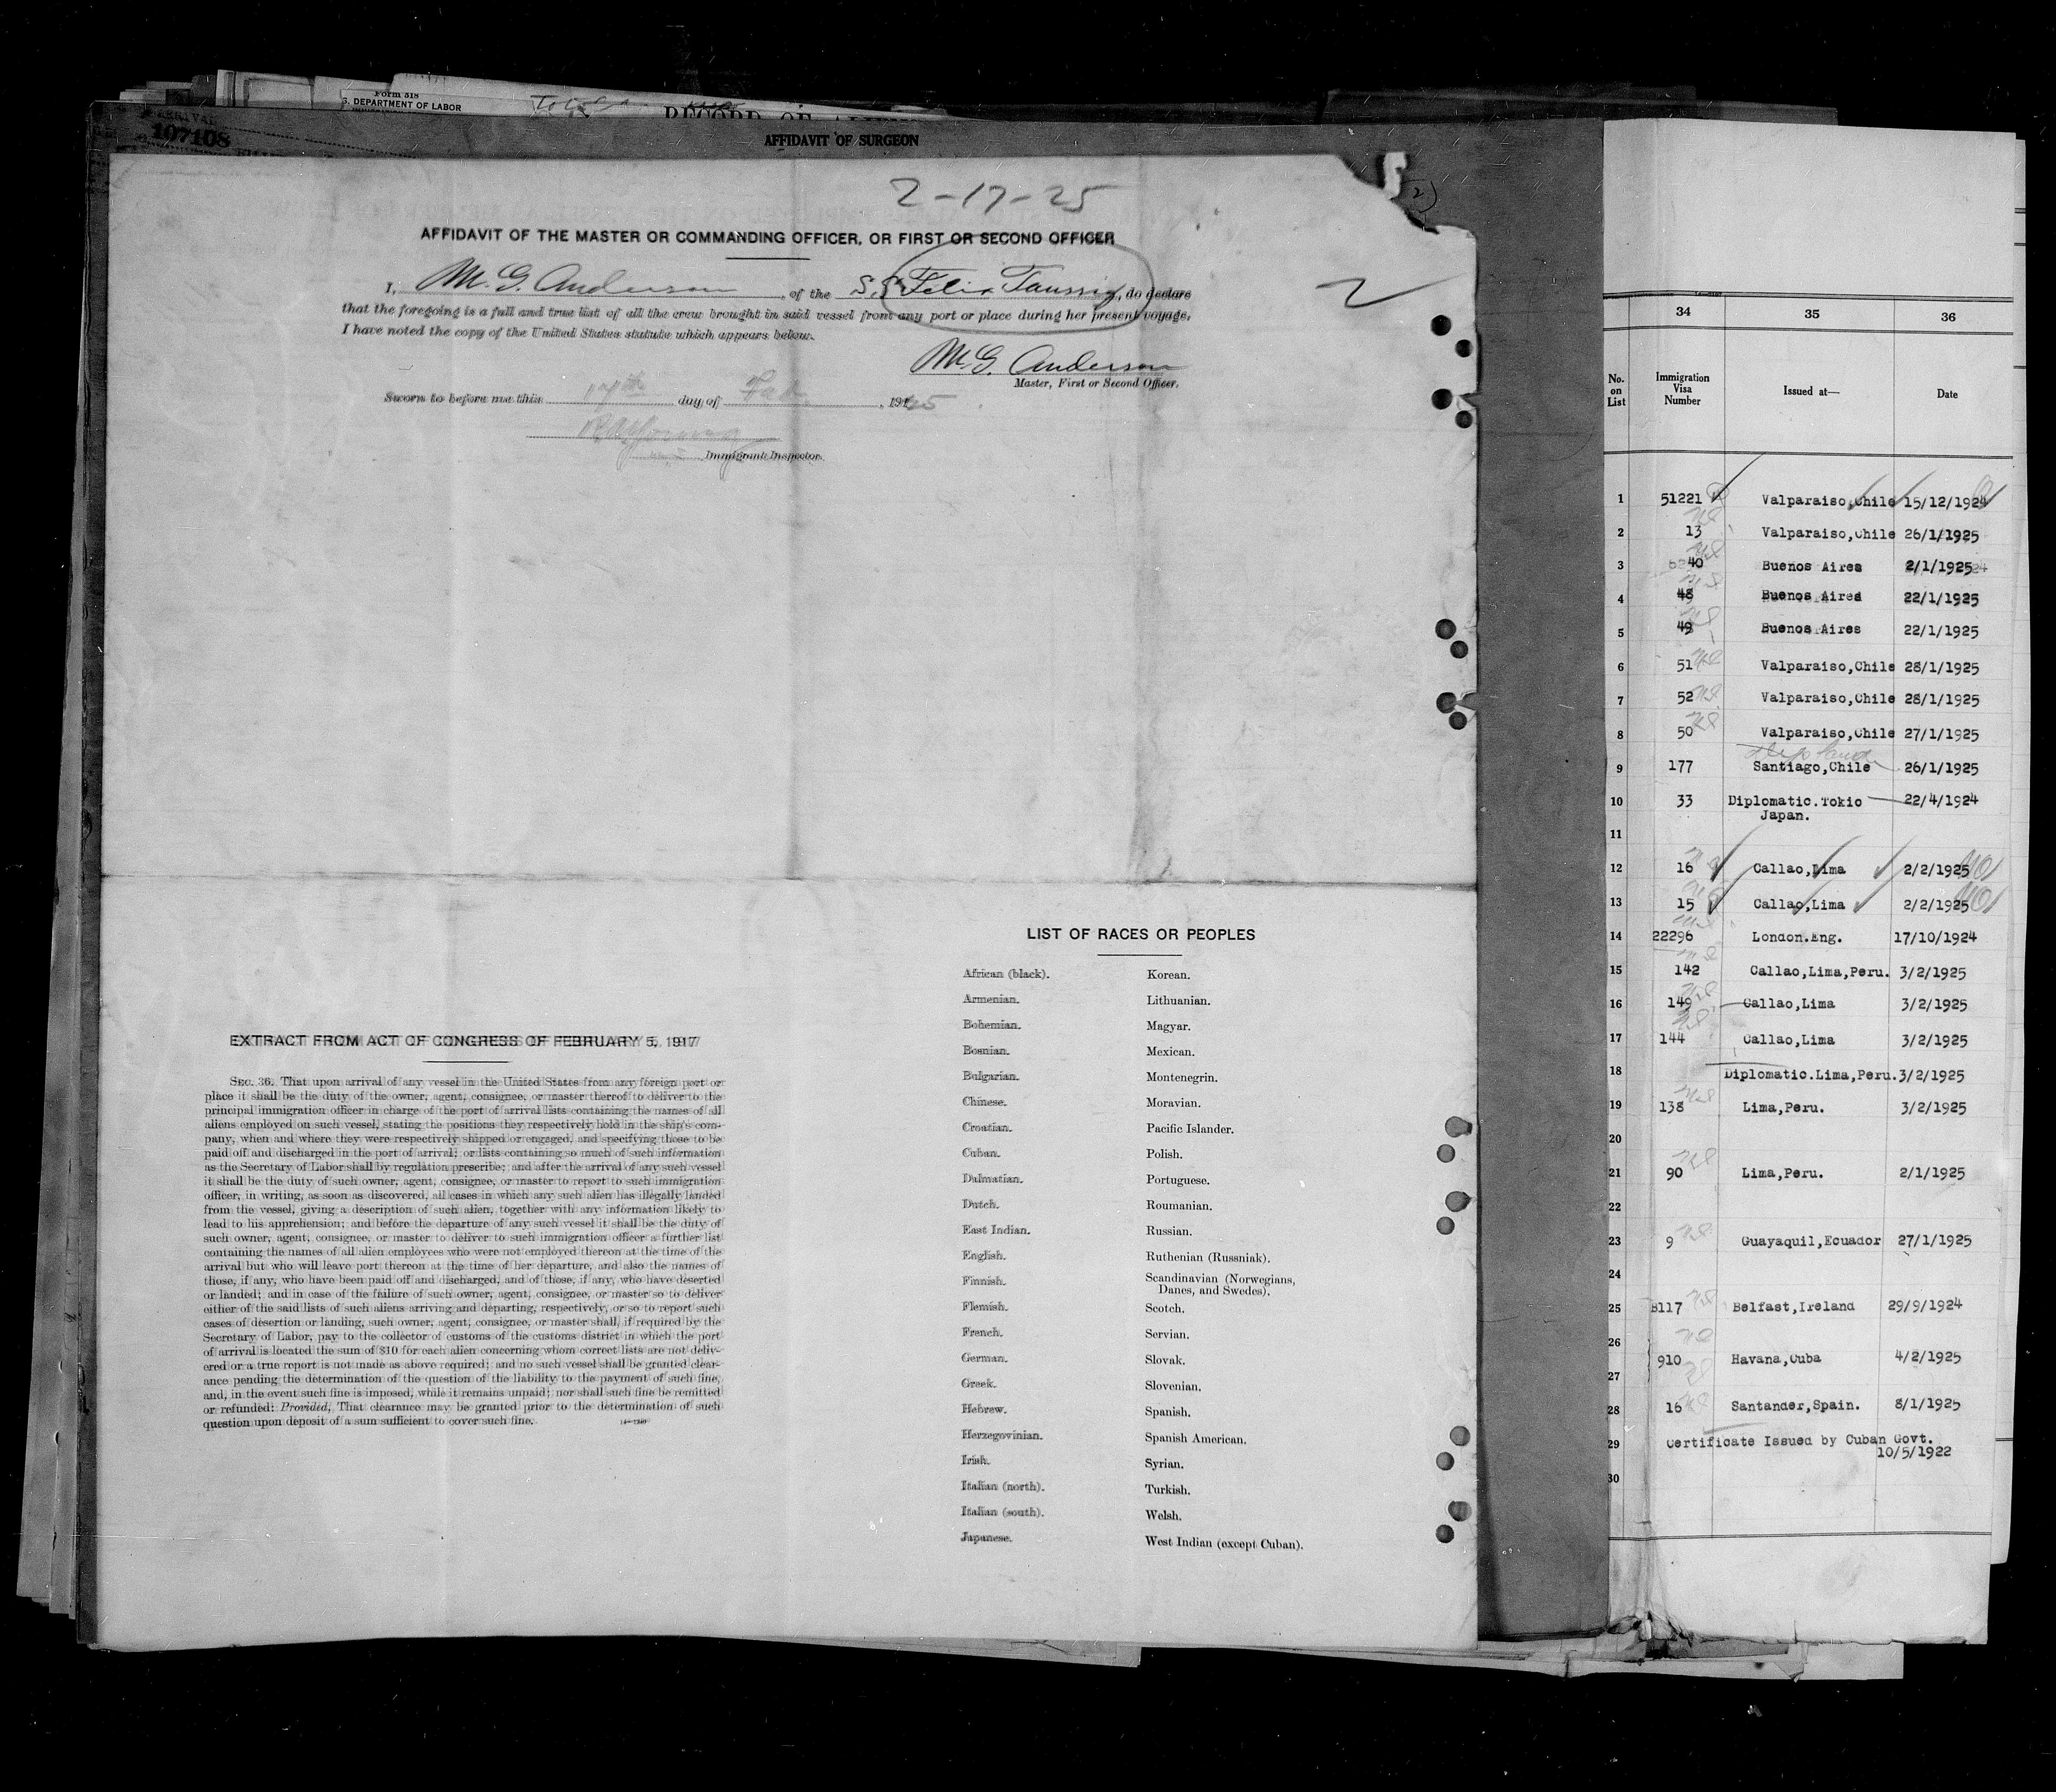 Form 518
S. DEPARTMENT OF LABOR
107108
AFFIDAVIT OF SURGEON
2-17-25
AFFIDAVIT OF THE MASTER OR COMMANDING OFFICER, OR FIRST OR SECOND OFFICER
I, M. G. Anderson, of the S.S. Felix Taussig, do declare
that the foregoing is a full and true list of all the crew brought in said vessel from any port or place during her present voyage.
I have noted the copy of the United States statute which appears below.
M. G. Anderson
Master, First or Second Officer.
Sworn to before me this 17th day of Feb, 1925
Immigrant Inspector.
EXTRACT FROM ACT OF CONGRESS OF FEBRUARY 5, 1917
SEC. 36. That upon arrival of any vessel in the United States from any foreign port or
place it shall be the duty of the owner, agent, consignee, or master thereof to deliver to the
principal immigration officer in charge of the port of arrival lists containing the names of all
aliens employed on such vessel, stating the positions they respectively hold in the ship's com-
pany, when and where they were respectively shipped or engaged, and specifying those to be
paid off and discharged in the port of arrival; or lists containing so much of such information
as the Secretary of Labor shall by regulation prescribe; and after the arrival of any such vessel
it shall be the duty of such owner, agent, consignee, or master to report to such immigration
officer, in writing, as soon as discovered, all cases in which any such alien has illegally landed
from the vessel, giving a description of such alien, together with any information likely to
lead to his apprehension; and before the departure of any such vessel it shall be the duty of
such owner, agent, consignee, or master to deliver to such immigration officer a further list
containing the names of all alien employees who were not employed thereon at the time of the
arrival but who will leave port thereon at the time of her departure, and also the names of
those, if any, who have been paid off and discharged, and of those, if any, who have deserted
or landed; and in case of the failure of such owner, agent, consignee, or master so to deliver
either of the said lists of such aliens arriving and departing, respectively, or so to report such
cases of desertion or landing, such owner, agent, consignee, or master shall, if required by the
Secretary of Labor, pay to the collector of customs of the customs district in which the port
of arrival is located the sum of $10 for each alien concerning whom correct lists are not deliv-
ered or a true report is not made as above required; and no such vessel shall be granted clear-
ance pending the determination of the question of the liability to the payment of such fine,
and, in the event such fine is imposed, while it remains unpaid; nor shall such fine be remitted
or refunded: Provided, That clearance may be granted prior to the determination of such
question upon deposit of a sum sufficient to cover such fine.
LIST OF RACES OR PEOPLES
African (black). Korean.
Armenian. Lithuanian.
Bohemian. Magyar.
Bosnian. Mexican.
Bulgarian. Montenegrin.
Chinese. Moravian.
Croatian. Pacific Islander.
Cuban. Polish.
Dalmatian. Portuguese.
Dutch. Roumanian.
East Indian. Russian.
English. Ruthenian (Russniak).
Finnish. Scandinavian (Norwegians,
Danes, and Swedes).
Flemish. Scotch.
French. Servian.
German. Slovak.
Greek. Slovenian.
Hebrew. Spanish.
Herzegovinian. Spanish American.
Irish. Syrian.
Italian (north). Turkish.
Italian (south). Welsh.
Japanese. West Indian (except Cuban).
34 35 36
No. on List Immigration Visa Number Issued at— Date
1 51221 Valparaiso,Chile 15/12/1924
2 13 Valparaiso,Chile 26/1/1925
3 40 Buenos Aires 2/1/1925
4 48 Buenos Aires 22/1/1925
5 49 Buenos Aires 22/1/1925
6 51 Valparaiso,Chile 28/1/1925
7 52 Valparaiso,Chile 28/1/1925
8 50 Valparaiso,Chile 27/1/1925
9 177 Santiago,Chile 26/1/1925
10 33 Diplomatic.Tokio 22/4/1924
Japan.
11
12 16 Callao,Lima 2/2/1925
13 15 Callao,Lima 2/2/1925
14 22296 London.Eng. 17/10/1924
15 142 Callao,Lima,Peru. 3/2/1925
16 149 Callao,Lima 3/2/1925
17 144 Callao,Lima 3/2/1925
18 Diplomatic.Lima,Peru. 3/2/1925
19 138 Lima,Peru. 3/2/1925
20
21 90 Lima,Peru. 2/1/1925
22
23 9 Guayaquil,Ecuador 27/1/1925
24
25 B117 Belfast,Ireland 29/9/1924
26
910 Havana,Cuba 4/2/1925
27
28 16 Santander,Spain. 8/1/1925
29 Certificate Issued by Cuban Govt.
10/5/1922
30